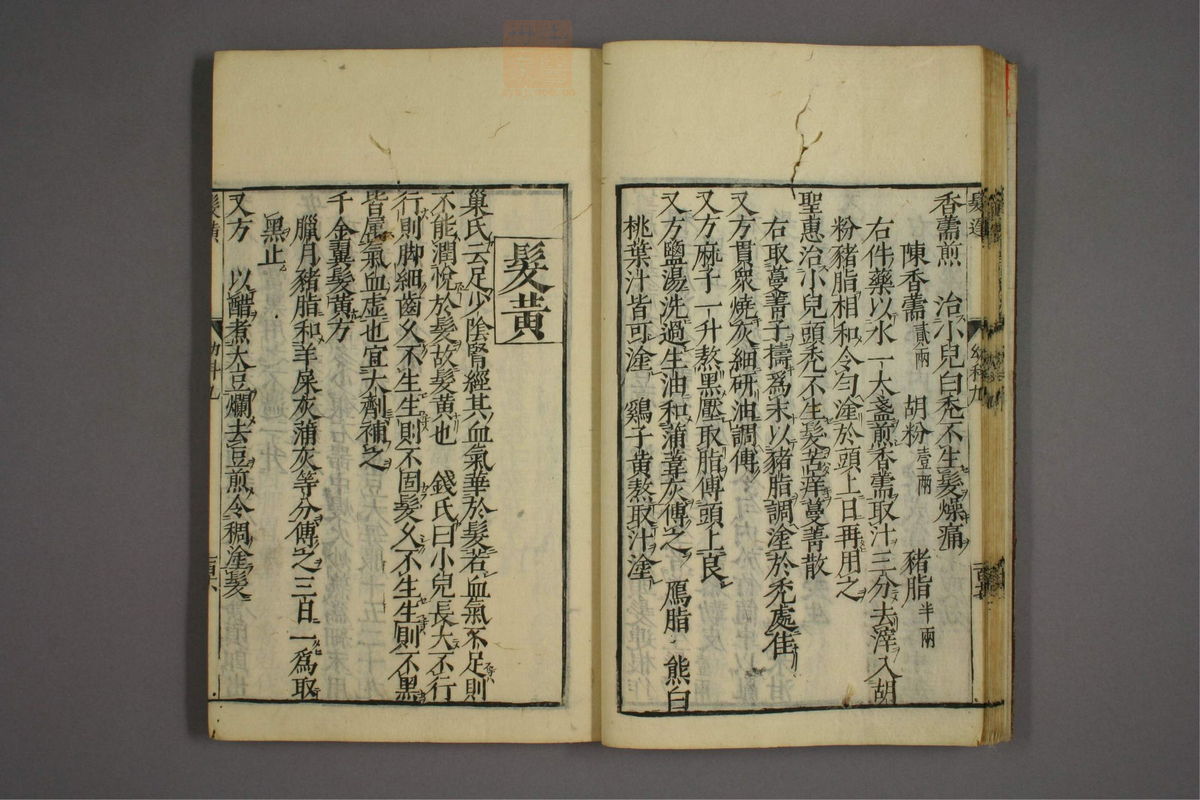 香薷煎　治小兒白禿不生髮燥痛
陳香薷貳兩　胡粉壹兩　豬脂半兩
右件藥以水一大盞煎香薷取汁三分去滓入胡
粉豬脂相和令勻塗於頭上日再用之
聖惠治小兒頭禿不生髮苦痒蔓菁散
右取蔓菁子擣爲末以豬脂調塗於禿處佳
又方貫衆燒灰細研油調傅
又方麻子一升熬黑壓取脂傅頭上良
又方鹽湯洗過生油和蒲葦灰傅之　鴈脂　熊白
桃葉汁皆可塗　鷄子黄熬取汁塗
髮黄
巢氏云足少陰腎經其血氣華於髮若血氣不足則
不能潤悅於髮故髮黄也　錢氏曰小兒長大不行
行則脚細齒久不生生則不固髮久不生生則不黑
皆屬氣血虛也宜大劑補之
千金翼髮黄方
臘月豬脂和羊屎灰蒲灰等分傅之三日一爲取
黑止
又方　以醋煮大豆爛去豆煎令稠塗髮
髮黄
幼科九